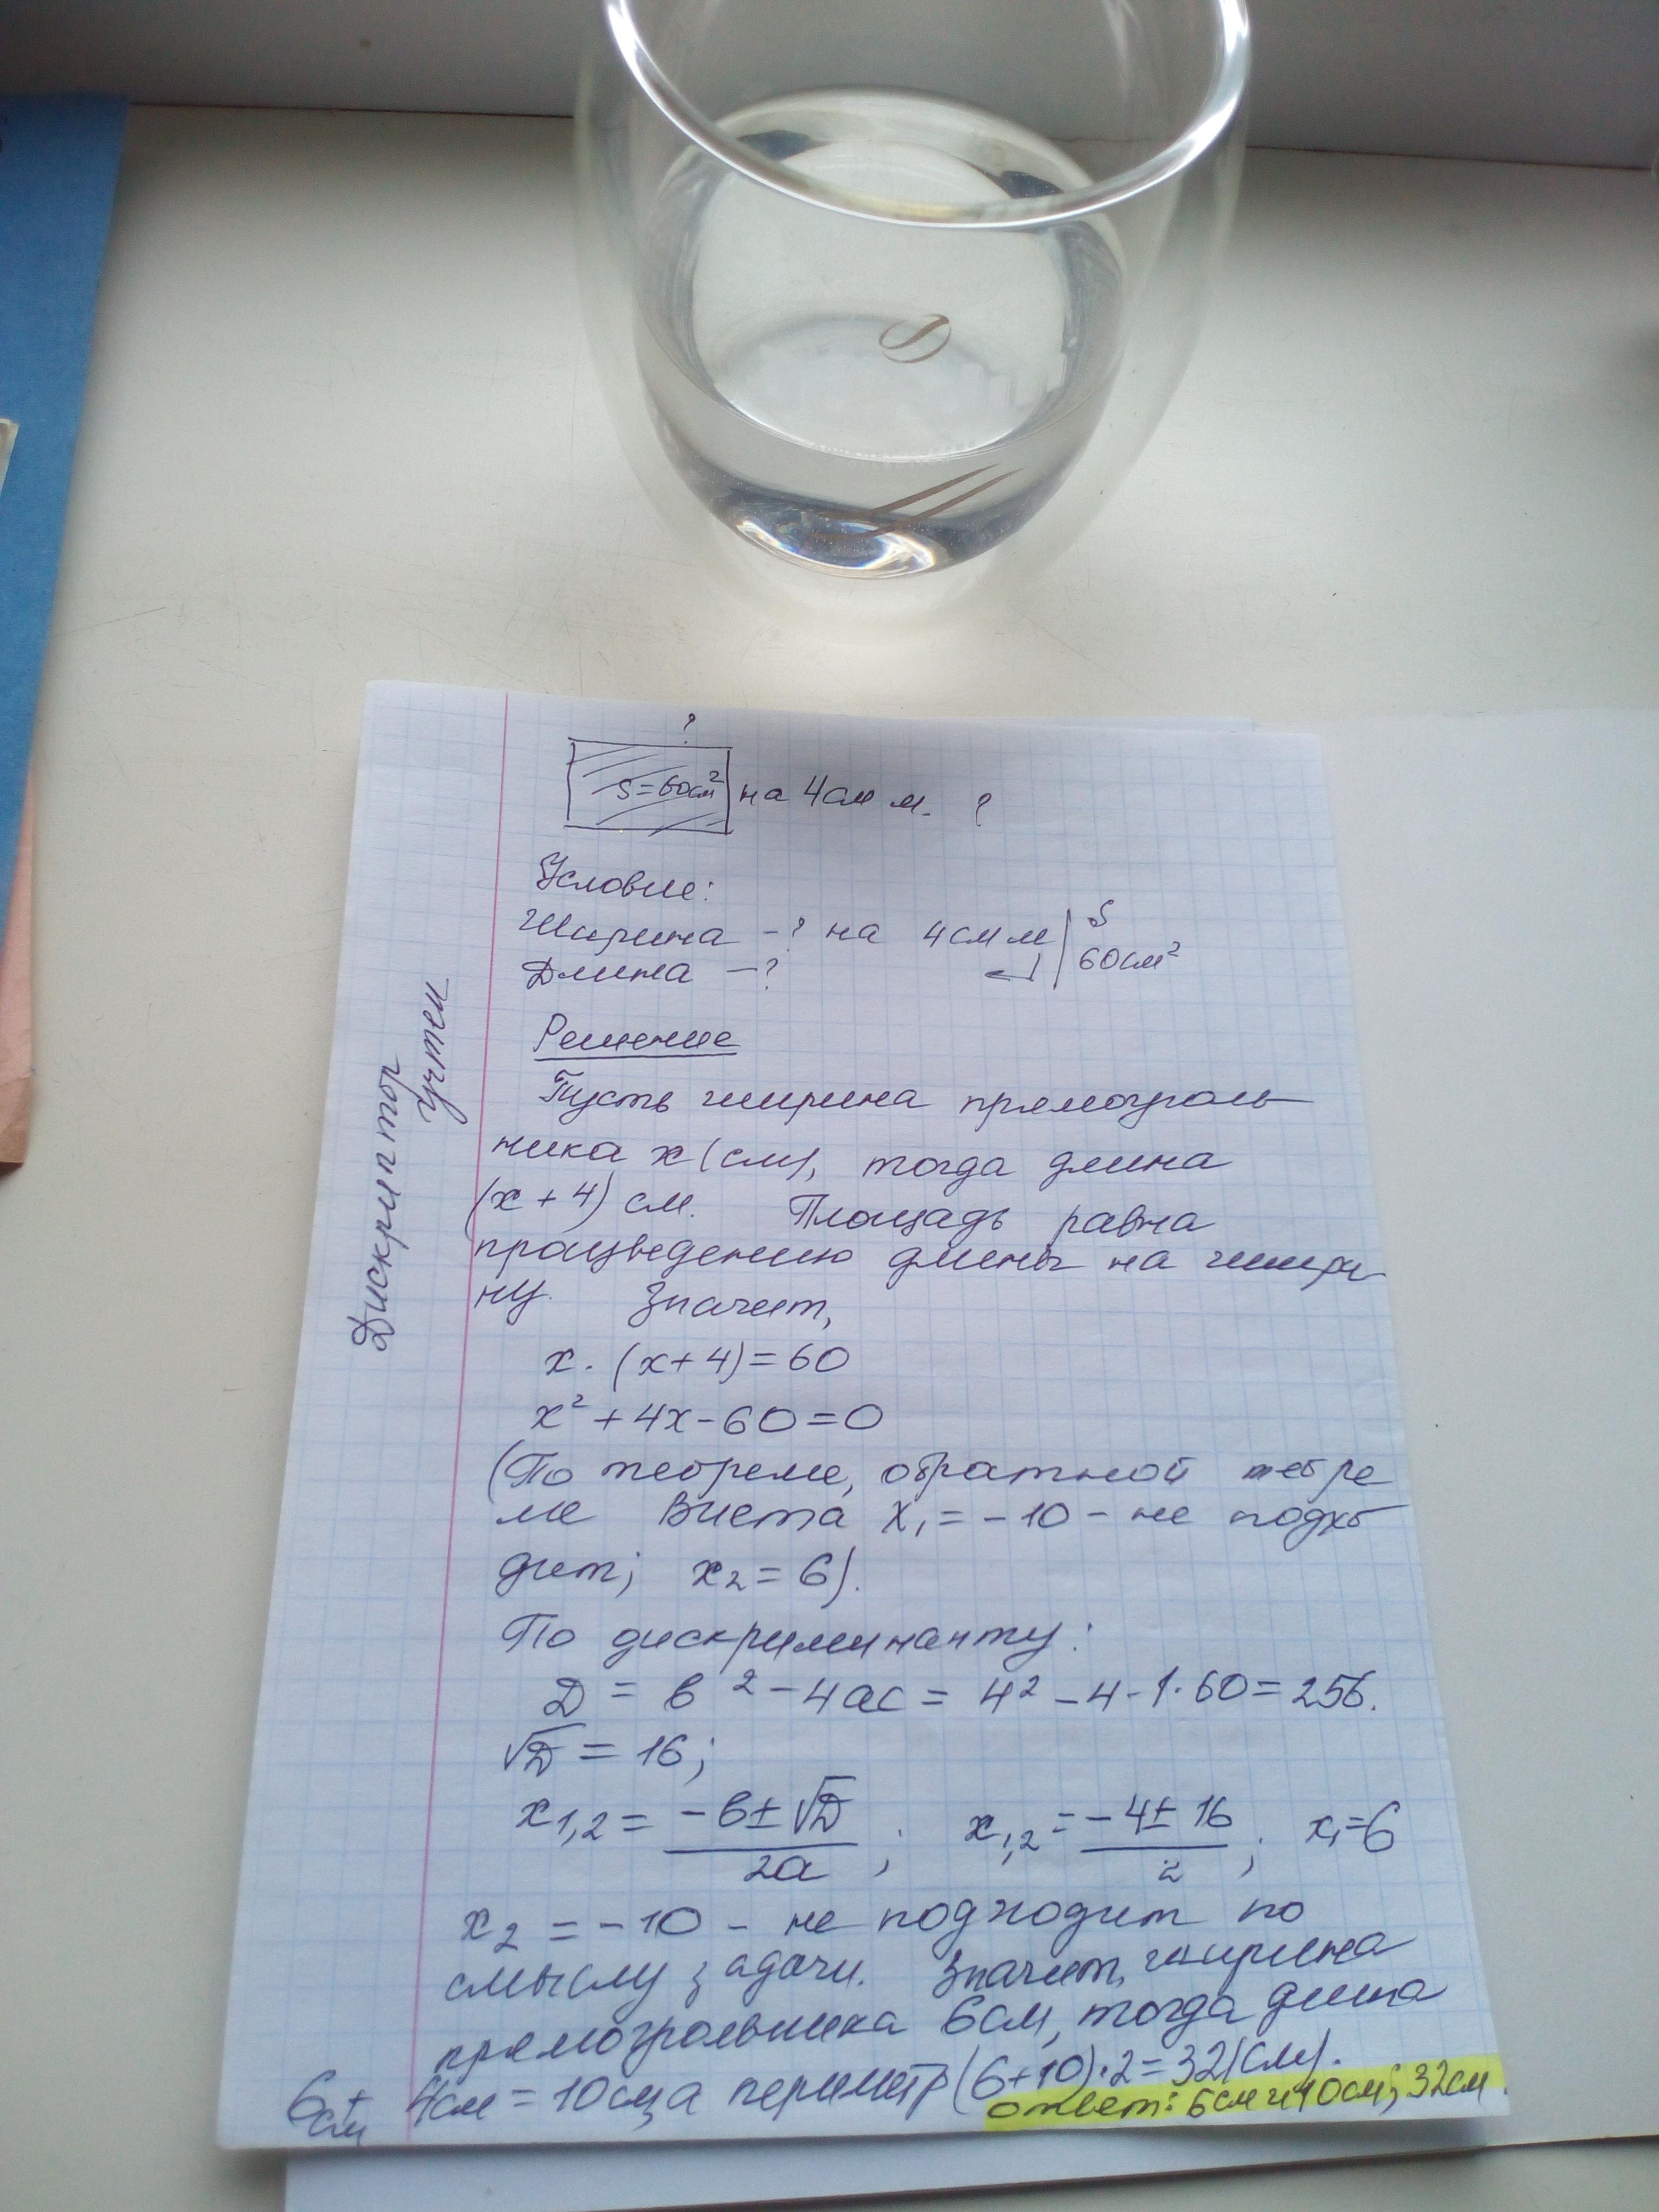 ?
S=60см² на 4см м. ?
Условие:
Ширина -? на 4см м S
Длина -? 60см²
Решение
Пусть ширина прямоуголь
ника x (см), тогда длина
(x+4) см. Площадь равна
произведению длины на шири
ну. Значит,
x·(x+4)=60
x²+4x-60=0
(По теореме, обратной теоре
ме Виета x₁=-10 - не подхо
дит; x₂=6).
По дискриминанту:
D = b²-4ac = 4²-4·1·60=256.
√D = 16;
x₁,₂ = (-b±√D)/2a ; x₁,₂ = (-4±16)/2 ; x₁=6
x₂ = -10 - не подходит по
смыслу задачи. Значит, ширина
прямоугольника 6см, тогда длина
6см + 4см = 10см, а периметр (6+10)·2=32(см).
ответ: 6см и 10см; 32см.
Дискриптор
учтен